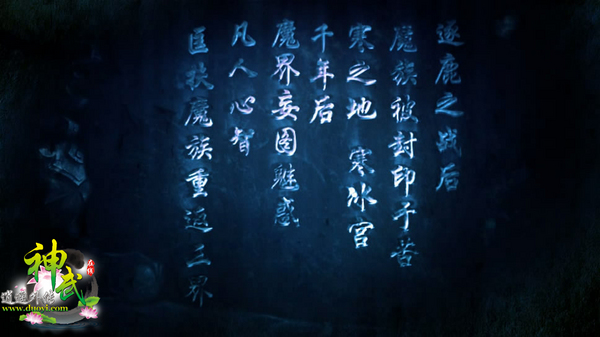 逐鹿之战后
魔族被封印于苦
寒之地 寒冰宫
千年后
魔界妄图魅惑
凡人心智
匡扶魔族重返三界
神武
逍遥外传
www.duoyi.com